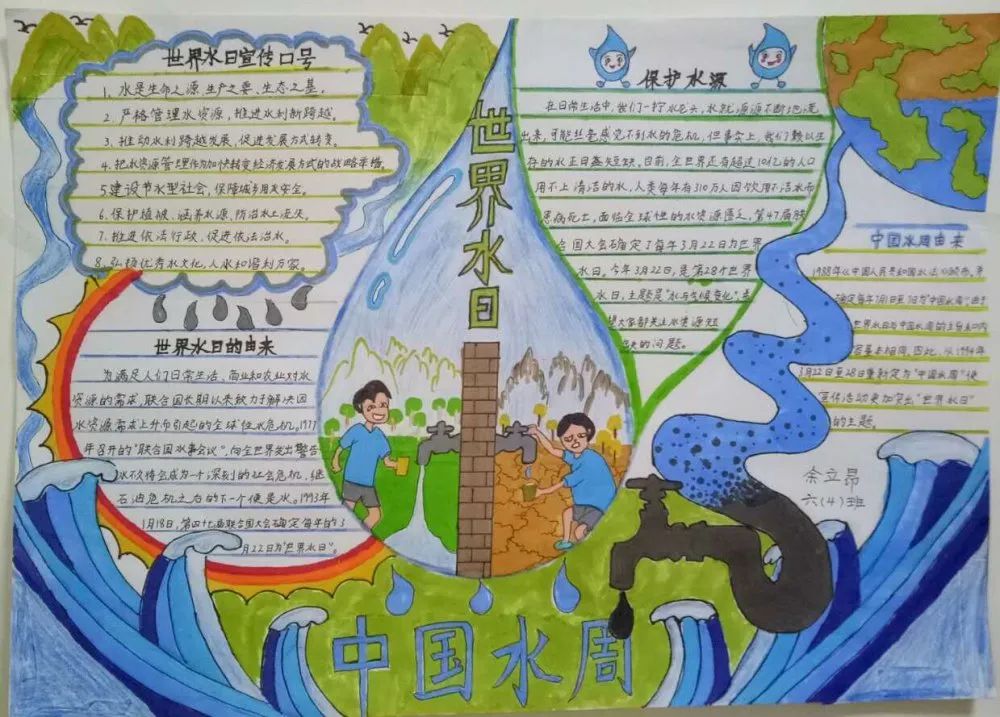 世界水日宣传口号
1、水是生命之源、生产之要、生态之基。
2、严格管理水资源,推进水利新跨越。
3、推动水利跨越发展,促进发展方式转变。
4、把水资源管理作为加快转变经济发展方式的战略举措
5、建设节水型社会,保障城乡用水安全。
6、保护植被、涵养水源、防治水土流失。
7、推进依法行政、促进依法治水。
8、弘扬优秀水文化,人水和谐利万家。
世界水日的由来
为满足人们日常生活、商业和农业对水
资源的需求,联合国长期以来致力于解决因
水资源需求上升而引起的全球性水危机。1977
年召开的“联合国水事会议”,向全世界发出警告
水不久将会成为一个深刻的社会危机,继
石油危机之后的下一个便是水。1993年
1月18日,第四十七届联合国大会确定每年的3
月22日为“世界水日”。
世界水日
保护水源
在日常生活中,我们一拧水龙头,水就源源不断地流
出来,可能丝毫感觉不到水的危机,但事实上,我们赖以生
存的水正日益短缺,目前,全世界还有超过10亿的人口
用不上清洁的水,人类每年有310万人因饮用不洁水而
患病死亡,面临全球性的水资源匮乏,第47届联
合国大会确定了每年3月22日为世界
水日。今年3月22日,是第28个世界
水日,主题是“水与气候变化”,希
望大家都关注水资源短
缺的问题。
中国水周由来
1988年《中国人民共和国水法》颁布,
确定每年7月1日至7日为“中国水周”由于
世界水日与中国水周的主旨和内
容基本相同,因此,从1994年
3月22日至28日重新定为“中国水周”使
宣传活动更加突出“世界水日”
的主题。
余立昂
六(4)班
中国水周